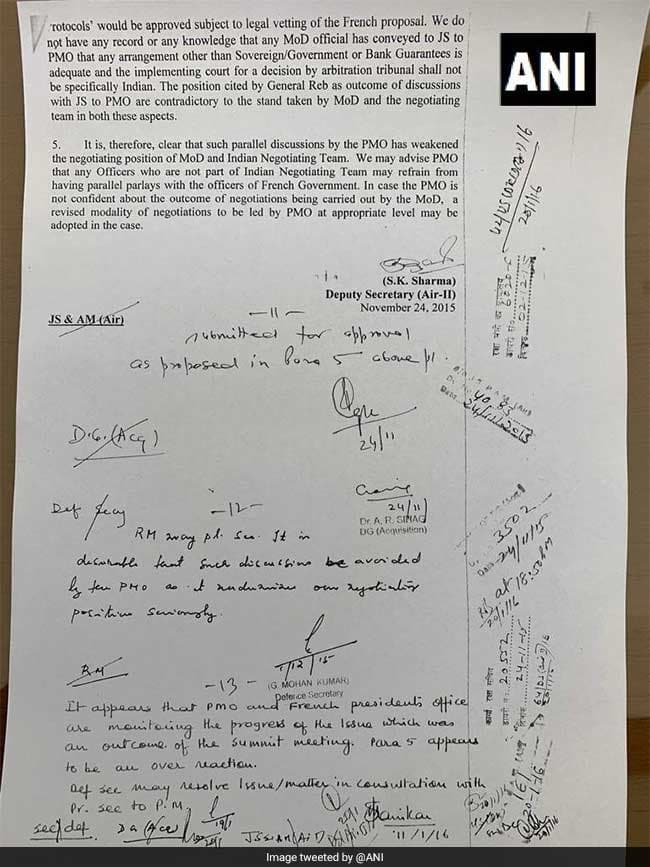 rotocols' would be approved subject to legal vetting of the French proposal. We do
not have any record or any knowledge that any MoD official has conveyed to JS to
PMO that any arrangement other than Sovereign/Government or Bank Guarantees is
adequate and the implementing court for a decision by arbitration tribunal shall not
be specifically Indian. The position cited by General Reb as outcome of discussions
with JS to PMO are contradictory to the stand taken by MoD and the negotiating
team in both these aspects.
5. It is, therefore, clear that such parallel discussions by the PMO has weakened
the negotiating position of MoD and Indian Negotiating Team. We may advise PMO
that any Officers who are not part of Indian Negotiating Team may refrain from
having parallel parlays with the officers of French Government. In case the PMO is
not confident about the outcome of negotiations being carried out by the MoD, a
revised modality of negotiations to be led by PMO at appropriate level may be
adopted in the case.
(S.K. Sharma)
Deputy Secretary (Air-II)
November 24, 2015
JS & AM (Air)
-11-
submitted for approval
as proposed in Para 5 above pl.
24/11
D.G. (Acq)
24/11
Dr. A. R. SIHAG
DG (Acquisition)
Def Secy
-12-
RM may pl. see. It is
desirable that such discussions be avoided
by the PMO as it undermines our negotiating
position seriously.
1/12/15
(G. MOHAN KUMAR)
Defence Secretary
RM
-13-
It appears that PMO and French president's office
are monitoring the progress of the issue which was
an outcome of the summit meeting. Para 5 appears
to be an over reaction.
Def sec may resolve issue/matter in consultation with
Pr. sec to P.M.
sec/def
DG (Acq)
JS&AM (Air)
11/1/16
ANI
20/1/16
02-12-15
24/11/2015
3502
24/11/15
at 18.50 PM
20/1/16
20552
24-11-15
Image tweeted by @ANI